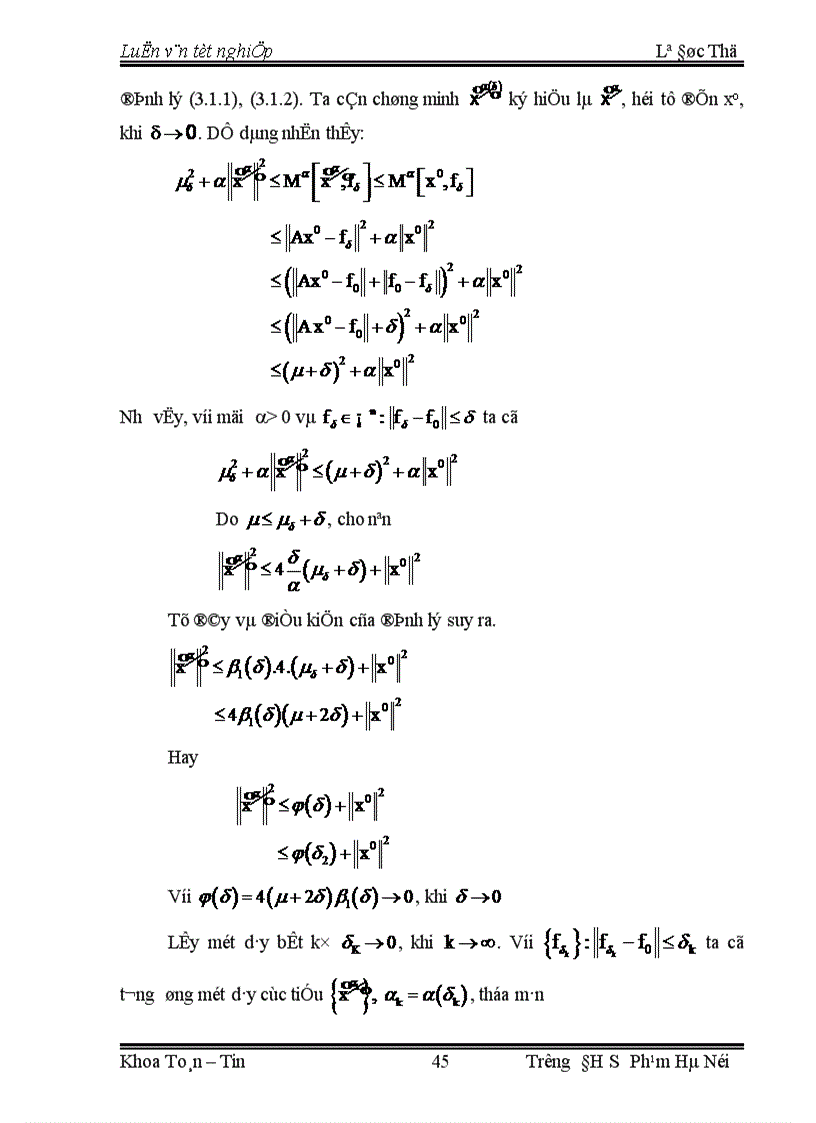 LuËn v¨n tèt nghiÖp Lª §øc Thä
®Þnh lý (3.1.1), (3.1.2). Ta cÇn chøng minh ký hiÖu lµ , héi tô ®Õn x⁰,
khi δ → 0. DÔ dµng nhËn thÊy:
≤ M^α[x⁰, f_δ]
≤ ‖Ax⁰ − f_δ‖² + α‖x⁰‖²
≤ (‖Ax⁰ − f₀‖ + ‖f₀ − f_δ‖)² + α‖x⁰‖²
≤ (‖Ax⁰ − f₀‖ + δ)² + α‖x⁰‖²
≤ (μ + δ)² + α‖x⁰‖²
Nh vËy, víi mäi α > 0 vµ f_δ ∈ ¡ ⁿ : ‖f_δ − f₀‖ ≤ δ ta cã
≤ (μ + δ)² + α‖x⁰‖²
Do μ ≤ μ_δ + δ, cho nªn
≤ 4 δ/α (μ_δ + δ) + ‖x⁰‖²
Tõ ®©y vµ ®iÒu kiÖn cña ®Þnh lý suy ra.
≤ β₁(δ).4.(μ_δ + δ) + ‖x⁰‖²
≤ 4β₁(δ)(μ + 2δ) + ‖x⁰‖²
Hay
≤ φ(δ) + ‖x⁰‖²
≤ φ(δ₂) + ‖x⁰‖²
Víi φ(δ) = 4(μ + 2δ)β₁(δ) → 0, khi δ → 0
LÊy mét d·y bÊt k× δ_K → 0, khi k → ∞. Víi {f_δₖ} : ‖f_δₖ − f₀‖ ≤ δₖ ta cã
t¬ng øng mét d·y cùc tiÓu , αₖ = α(δₖ), tháa m·n
Khoa To¸n – Tin 45 Trêng §H S Ph¹m Hµ Néi